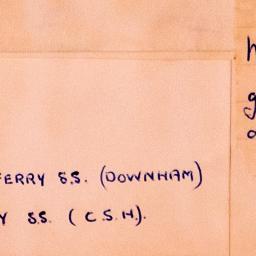 FERRY S.S. (DOWNHAM)
Y S.S. (C.S.H.).